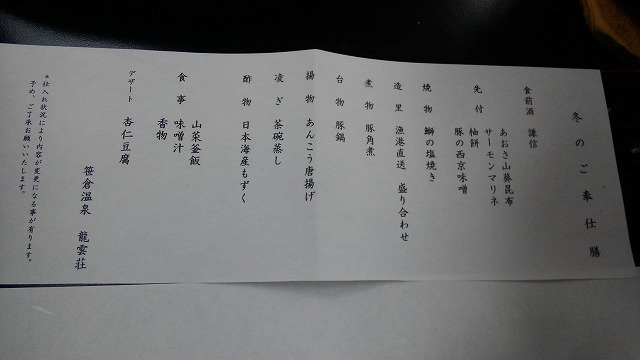 冬のご奉仕膳
食前酒 謙信
先付 あおさ山葵昆布
サーモンマリネ
柚餅
豚の西京味噌
焼物 鰤の塩焼き
造里 漁港直送 盛り合わせ
煮物 豚角煮
台物 豚鍋
揚物 あんこう唐揚げ
凌ぎ 茶碗蒸し
酢物 日本海産もずく
食事 山菜釜飯
味噌汁
香物
デザート 杏仁豆腐
笹倉温泉 龍雲荘
※仕入れ状況により内容が変更になる事が有ります。
予め、ご了承お願いいたします。